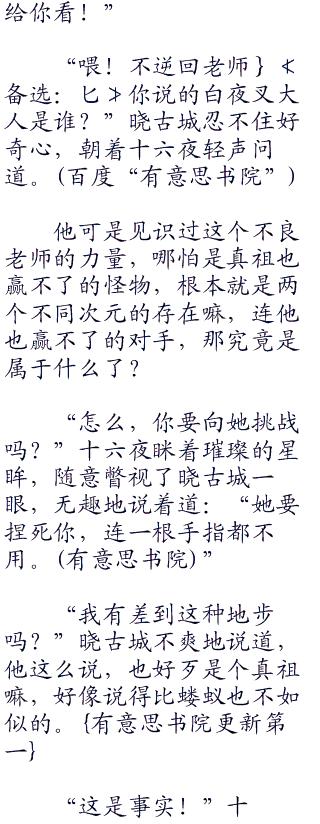 给你看！”
“喂！不逆回老师｝＜
备选：匕＞你说的白夜叉大
人是谁？”晓古城忍不住好
奇心，朝着十六夜轻声问
道。(百度“有意思书院”)
他可是见识过这个不良
老师的力量，哪怕是真祖也
赢不了的怪物，根本就是两
个不同次元的存在嘛，连他
也赢不了的对手，那究竟是
属于什么了？
“怎么，你要向她挑战
吗？”十六夜眯着璀璨的星
眸，随意瞥视了晓古城一
眼，无趣地说着道：“她要
捏死你，连一根手指都不
用。(有意思书院)”
“我有差到这种地步
吗？”晓古城不爽地说道，
他这么说，也好歹是个真祖
嘛，好像说得比蝼蚁也不如
似的。{有意思书院更新第
一}
“这是事实！”十